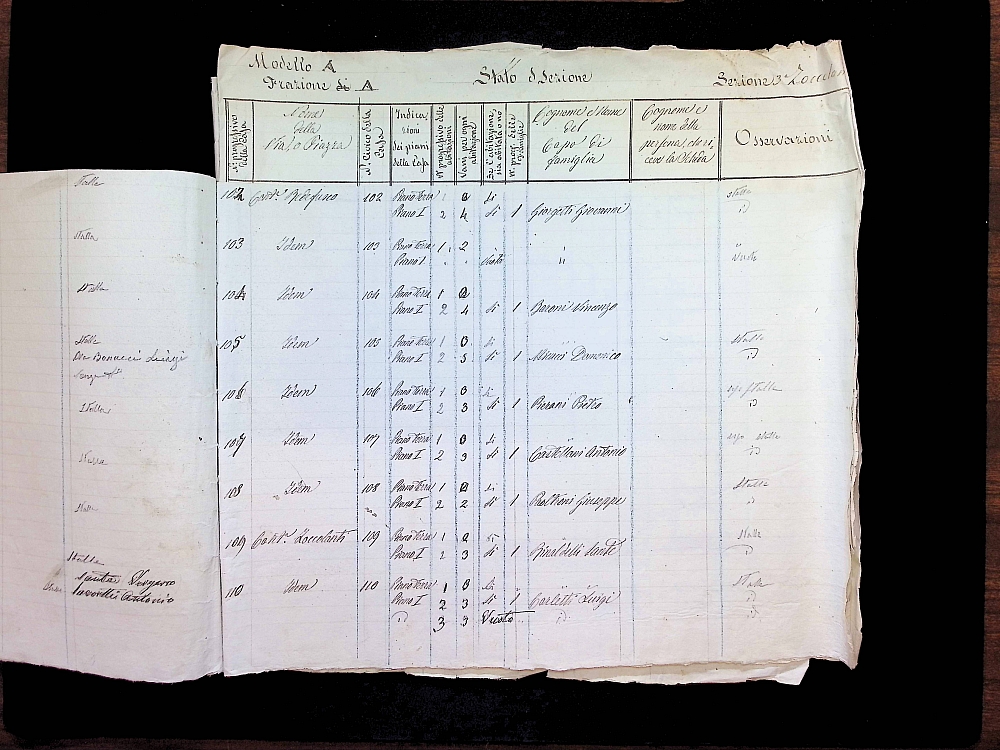 Modello A
Frazione di A
Stato d Sezione
Sezione 3ª
N. progressivo della Casa
Nome della Via, o Piazza
N. Civico della Casa
Indicazioni dei piani della Casa
N. progressivo delle abitazioni
Vani per ogni abitazione
Se l'abitazione sia abitata o no
N. prog. delle famiglie
Cognome e Nome del Capo di famiglia
Cognome e nome della persona, che riceve la scheda
Osservazioni
102 102 Piano Terra 1 0 si stalla
Piano I 2 4 si 1 Giorgetti Giovanni id
103 Idem 103 Piano Terra 1 2 "
Piano I " " Vuoto " Vuoto
104 Idem 104 Piano Terra 1 0
Piano I 2 4 si 1 Baroni Vincenzo
105 Idem 105 Piano Terra 1 0 si Stalla
Piano I 2 3 si 1 Domenico id
106 Idem 106 Piano Terra 1 0 si uso stalla
Piano I 2 3 si 1 Pierani Pietro id
107 Idem 107 Piano Terra 1 0 si uso stalla
Piano I 2 3 si 1 Castellani Antonio id
108 Idem 108 Piano Terra 1 0 si Stalla
Piano I 2 2 si 1 Giuseppe id
109 Cont. Zoccolanti 109 Piano Terra 1 0 si Stalla
Piano I 2 3 si 1 Rinaldelli Sante id
110 Idem 110 Piano Terra 1 0 si Stalla
Piano I 2 3 si 1 Carletti Luigi id
id 3 3 Vuoto id id
Stalla
Stalla
Stalla
Stalla
Luigi
Stalla
Stalla
Stalla
Antonio